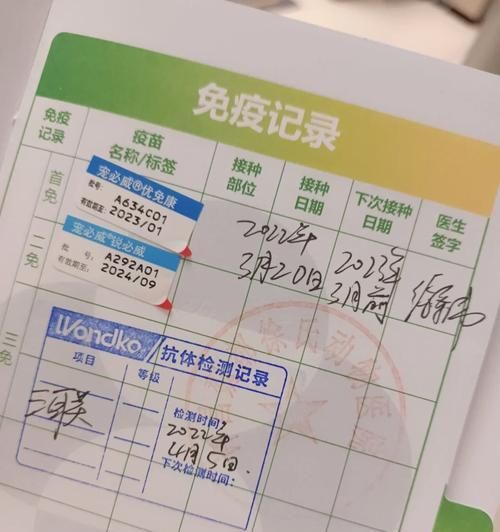 免疫记录
免疫记录 疫苗名称/标签 接种部位 接种日期 下次接种日期 医生签字
首免
宠必威®优免康
批号: A634C01
有效期至: 2023/01
二免
宠必威®锐必威
批号: A292A01
有效期至: 2024/09
2022年
3月20日
2023年
3月前
三免
Wondko/抗体检测记录
项目 等级
检测时间:
2022年
4月5日
下次检测时间:
三联